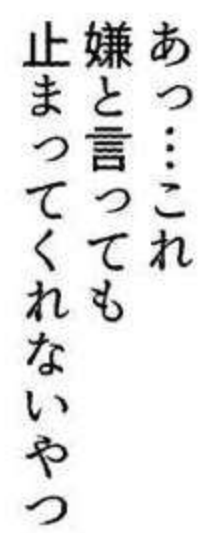 あっ…これ
嫌と言っても
止まってくれないやつ